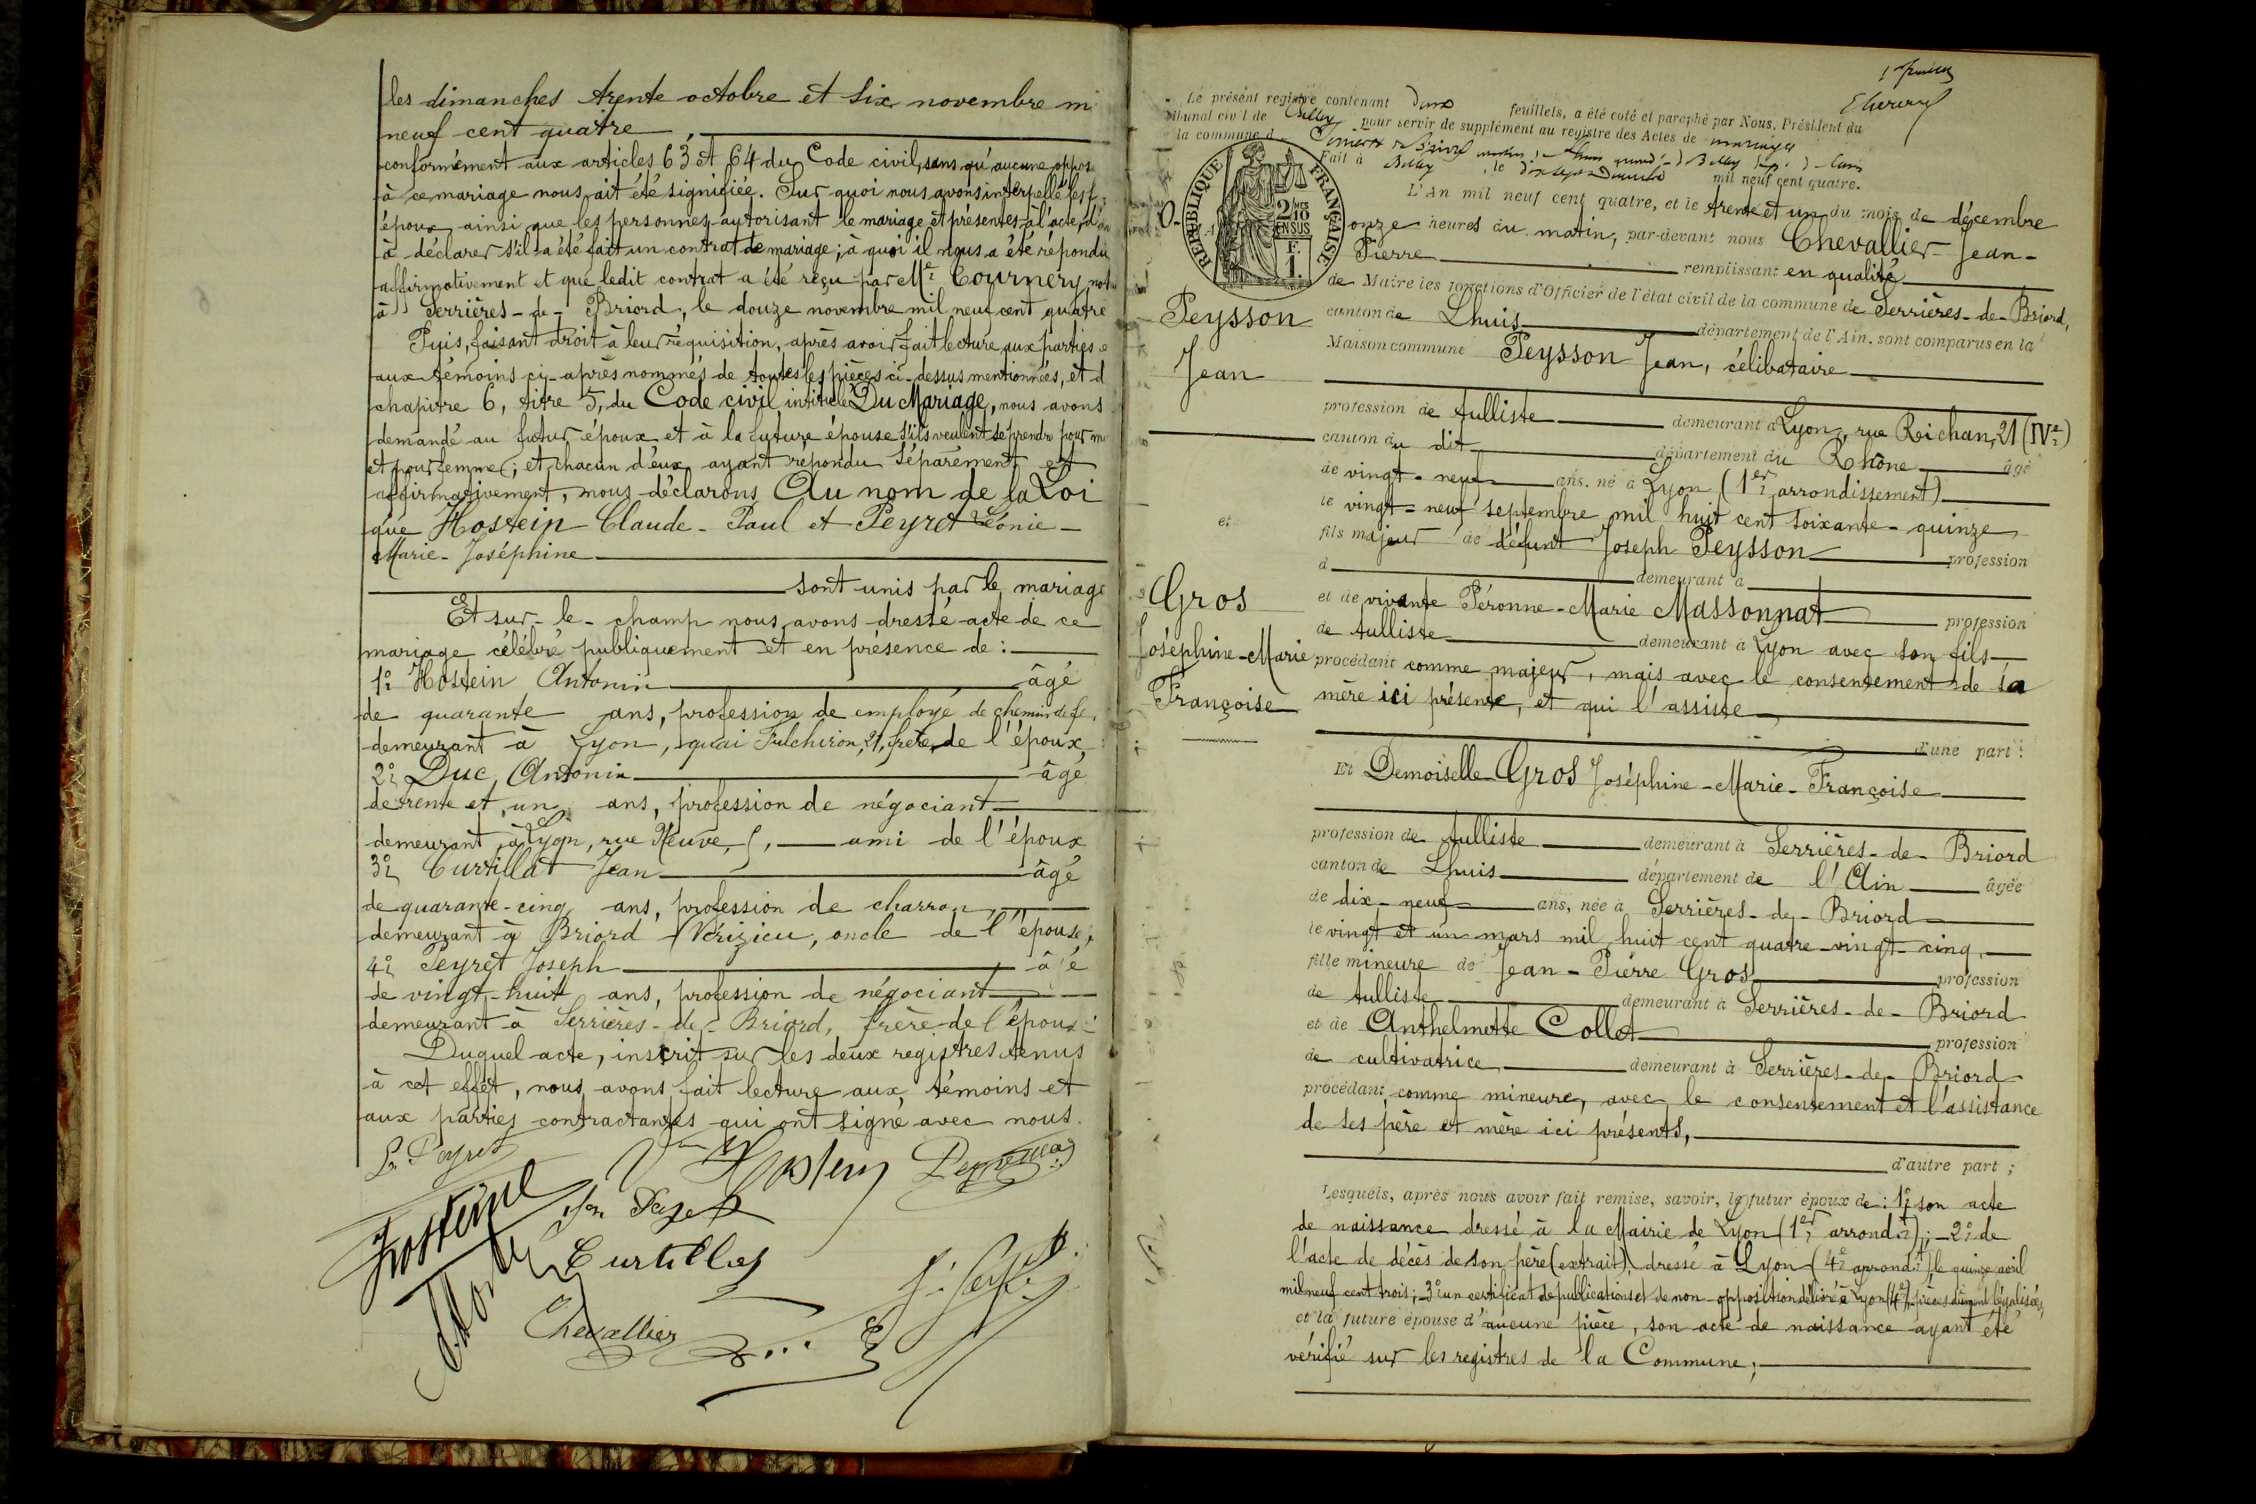 les dimanches trente octobre et six novembre mi
neuf cent quatre
conformément aux articles 63 et 64 du Code civil, sans qu'aucune oppos
à ce mariage nous ait été signifiée. Sur quoi nous avons interpellé les f
époux, ainsi que les personnes autorisant le mariage et présentes à l'acte, d'
à déclarer s'il a été fait un contrat de mariage; à quoi il nous a été répondu
affirmativement et que ledit contrat a été reçu par Me Cournery, not
à Serrières-de-Briord, le douze novembre mil neuf cent quatre
Puis, faisant droit à leur réquisition, après avoir fait lecture aux parties e
aux témoins ci-après nommés de toutes les pièces ci-dessus mentionnées, et d
chapitre 6, titre 5, du Code civil intitulé Du Mariage, nous avons
demandé au futur époux et à la future épouse s'ils veulent se prendre pour m
et pour femme; et chacun d'eux ayant répondu séparément et
affirmativement, nous déclarons Au nom de la Loi
que Hostein Claude-Paul et Peyret Léonie-
Marie-Joséphine
sont unis par le mariage
Et sur-le-champ nous avons dressé acte de ce
mariage célébré publiquement et en présence de :
1° Hostein Antonin âgé
de quarante ans, profession de employé de chemin de fe
demeurant à Lyon, quai Fulchiron, 21, frère de l'époux
2° Duc Antonin âgé
de trente et un ans, profession de négociant
demeurant à Lyon, rue Neuve, ami de l'époux
3° Curtillat Jean âgé
de quarante-cinq ans, profession de charron
demeurant à Briord (Vérizieu, oncle de l'épouse,
4° Peyret Joseph â é
de vingt-huit ans, profession de négociant
demeurant à Serrières-de-Briord, frère de l'épous
Duquel acte, inscrit sur les deux registres tenus
à cet effet, nous avons fait lecture aux témoins et
aux parties contractantes qui ont signé avec nous.
L. Peyret
Hostein
Curtillat
Chevallier
Le présent registre contenant Deux feuillets, a été coté et paraphé par Nous, Président du
tribunal civil de Belley pour servir de supplément au registre des Actes de mariages
la commune d
Fait à Belley, le mil neuf cent quatre.
L'An mil neuf cent quatre, et le trente et un du mois de décembre
RÉPUBLIQUE FRANÇAISE
2/10 EN SUS
F. 1.
onze heures du matin, par-devant nous Chevallier Jean-
Pierre remplissant en qualité
de Maire les fonctions d'Officier de l'état civil de la commune de Serrières-de-Briord,
canton de Lhuis département de l'Ain, sont comparus en la
Maison commune Peysson Jean, célibataire
Peysson
Jean
et
Gros
Joséphine-Marie
Françoise
profession de tulliste demeurant à Lyon, rue Richan, 21 (IVe)
canton du dit département du Rhône âgé
de vingt-neuf ans, né à Lyon (1er arrondissement)
le vingt-neuf septembre mil huit cent soixante-quinze
fils majeur de défunt Joseph Peysson profession
d demeurant à
et de vivante Péronne-Marie Massonnat profession
de tulliste demeurant à Lyon avec son fils
procédant comme majeur, mais avec le consentement de sa
mère ici présente, et qui l'assiste
d'une part :
Et Demoiselle Gros Joséphine-Marie-Françoise
profession de tulliste demeurant à Serrières-de-Briord
canton de Lhuis département de l'Ain âgée
de dix-neuf ans, née à Serrières-de-Briord
le vingt et un mars mil huit cent quatre-vingt-cinq,
fille mineure de Jean-Pierre Gros profession
de tulliste demeurant à Serrières-de-Briord
et de Anthelmette Collet profession
de cultivatrice demeurant à Serrières-de-Briord
procédant comme mineure, avec le consentement et l'assistance
de ses père et mère ici présents,
d'autre part ;
Lesquels, après nous avoir fait remise, savoir, le futur époux de : 1° son acte
de naissance dressé à la Mairie de Lyon (1er arrondt); - 2° de
l'acte de décès de son père (extrait), dressé à Lyon (4e arrondt) le quinze avril
mil neuf cent trois; 3° un certificat de publications et de non-opposition délivré à Lyon (4e), pièces dûment légalisées,
et la future épouse d'aucune pièce, son acte de naissance ayant été
vérifié sur les registres de la Commune;